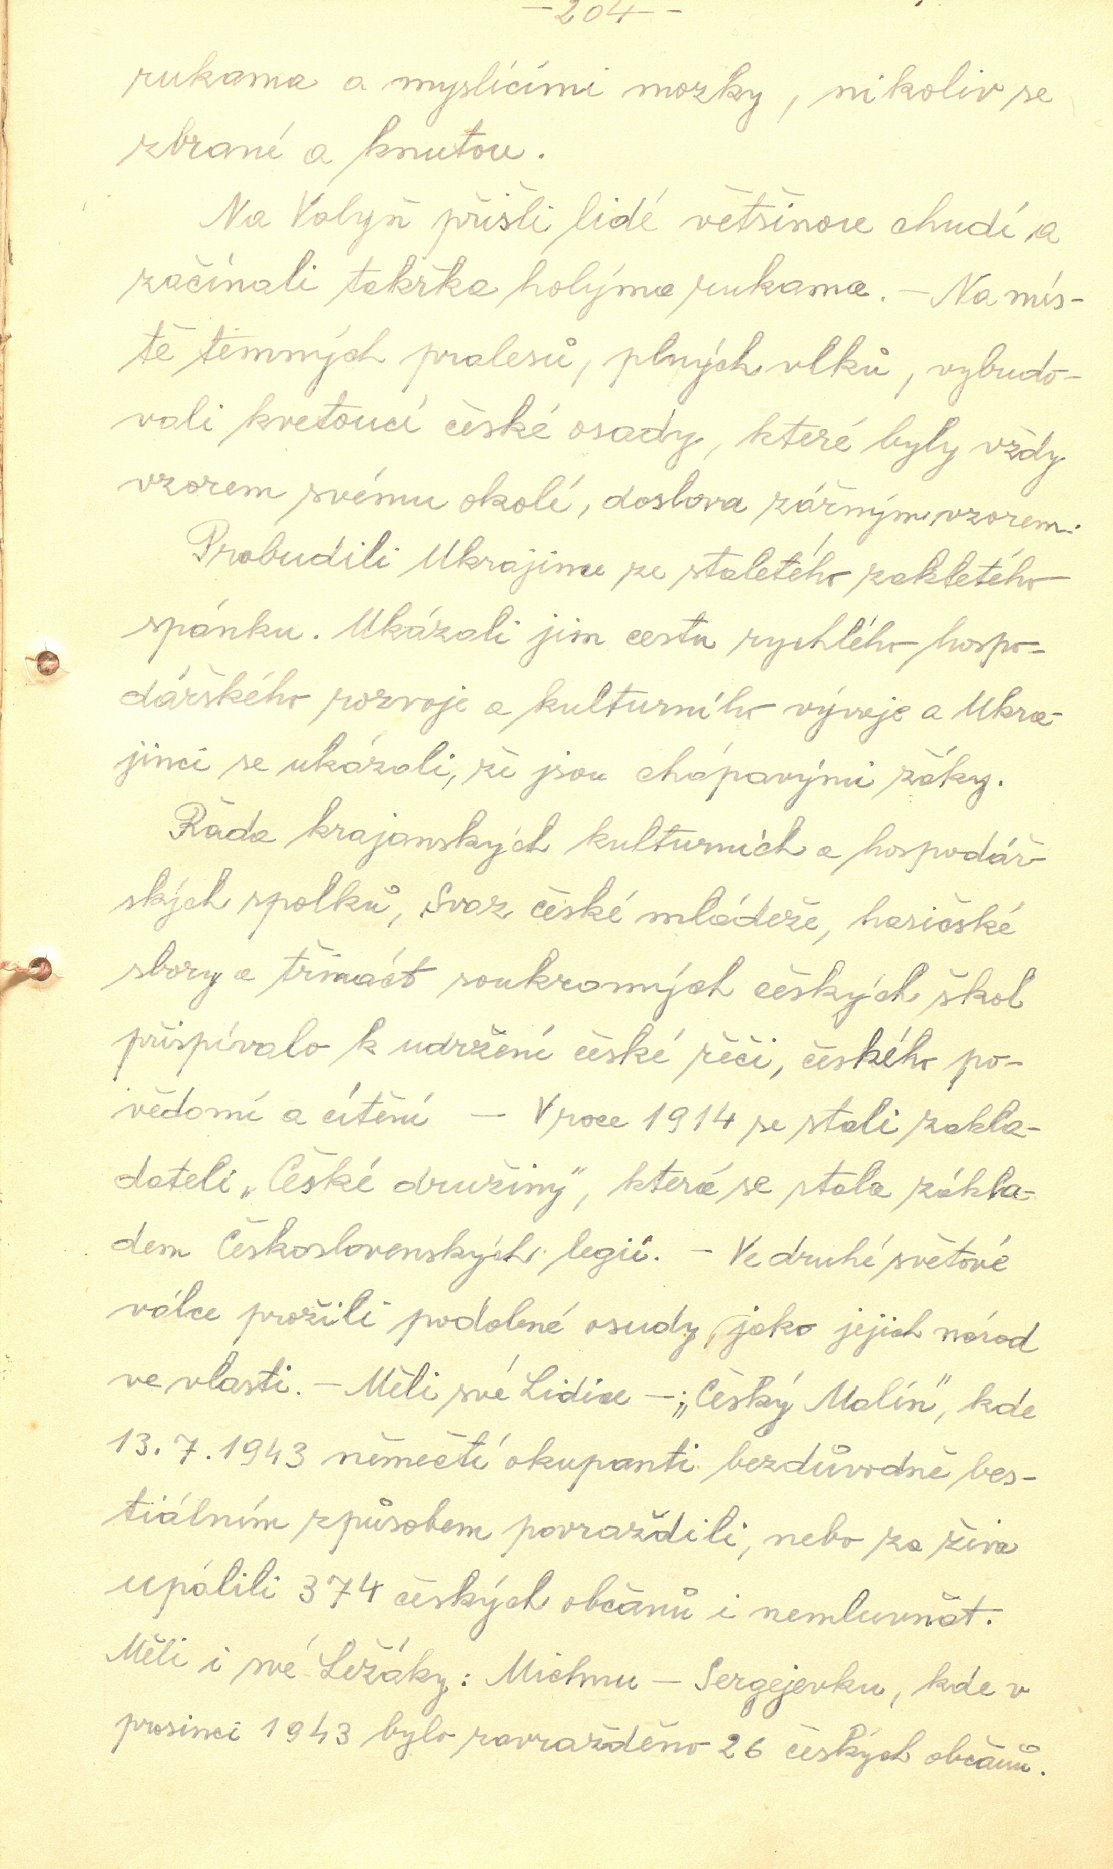 —204—
rukama a myslícími mozky, nikoliv se
zbraní a knutou.
Na Volyň přišli lidé většinou chudí a
začínali takřka holýma rukama. — Na mís-
tě temných pralesů, plných vlků, vybudo-
vali kvetoucí české osady, které byly vždy
vzorem svému okolí, doslova zářným vzorem.
Probudili Ukrajinu ze staletého zakletého
spánku. Ukázali jim cestu rychlého hospo-
dářského rozvoje a kulturního vývoje a Ukra-
jinci se ukázali, že jsou chápavými žáky.
Řada krajanských kulturních a hospodář-
ských spolků, Svaz české mládeže, hasičské
sbory a třináct soukromných českých škol
přispívalo k udržení české řeči, českého po-
vědomí a cítění — V roce 1914 se stali zakla-
dateli „České družiny", která se stala zákla-
dem Československých legií. — Ve druhé světové
válce prožili podobné osudy, jako jejich národ
ve vlasti. — Měli své Lidice — „Český Malín", kde
13. 7. 1943 němečtí okupanti bezdůvodně bes-
tiálním způsobem povraždili, nebo za živa
upálili 374 českých občanů i nemluvňat.
Měli i své Ležáky: Michnu — Sergejevku, kde v
prosinci 1943 bylo zavražděno 26 českých občanů.